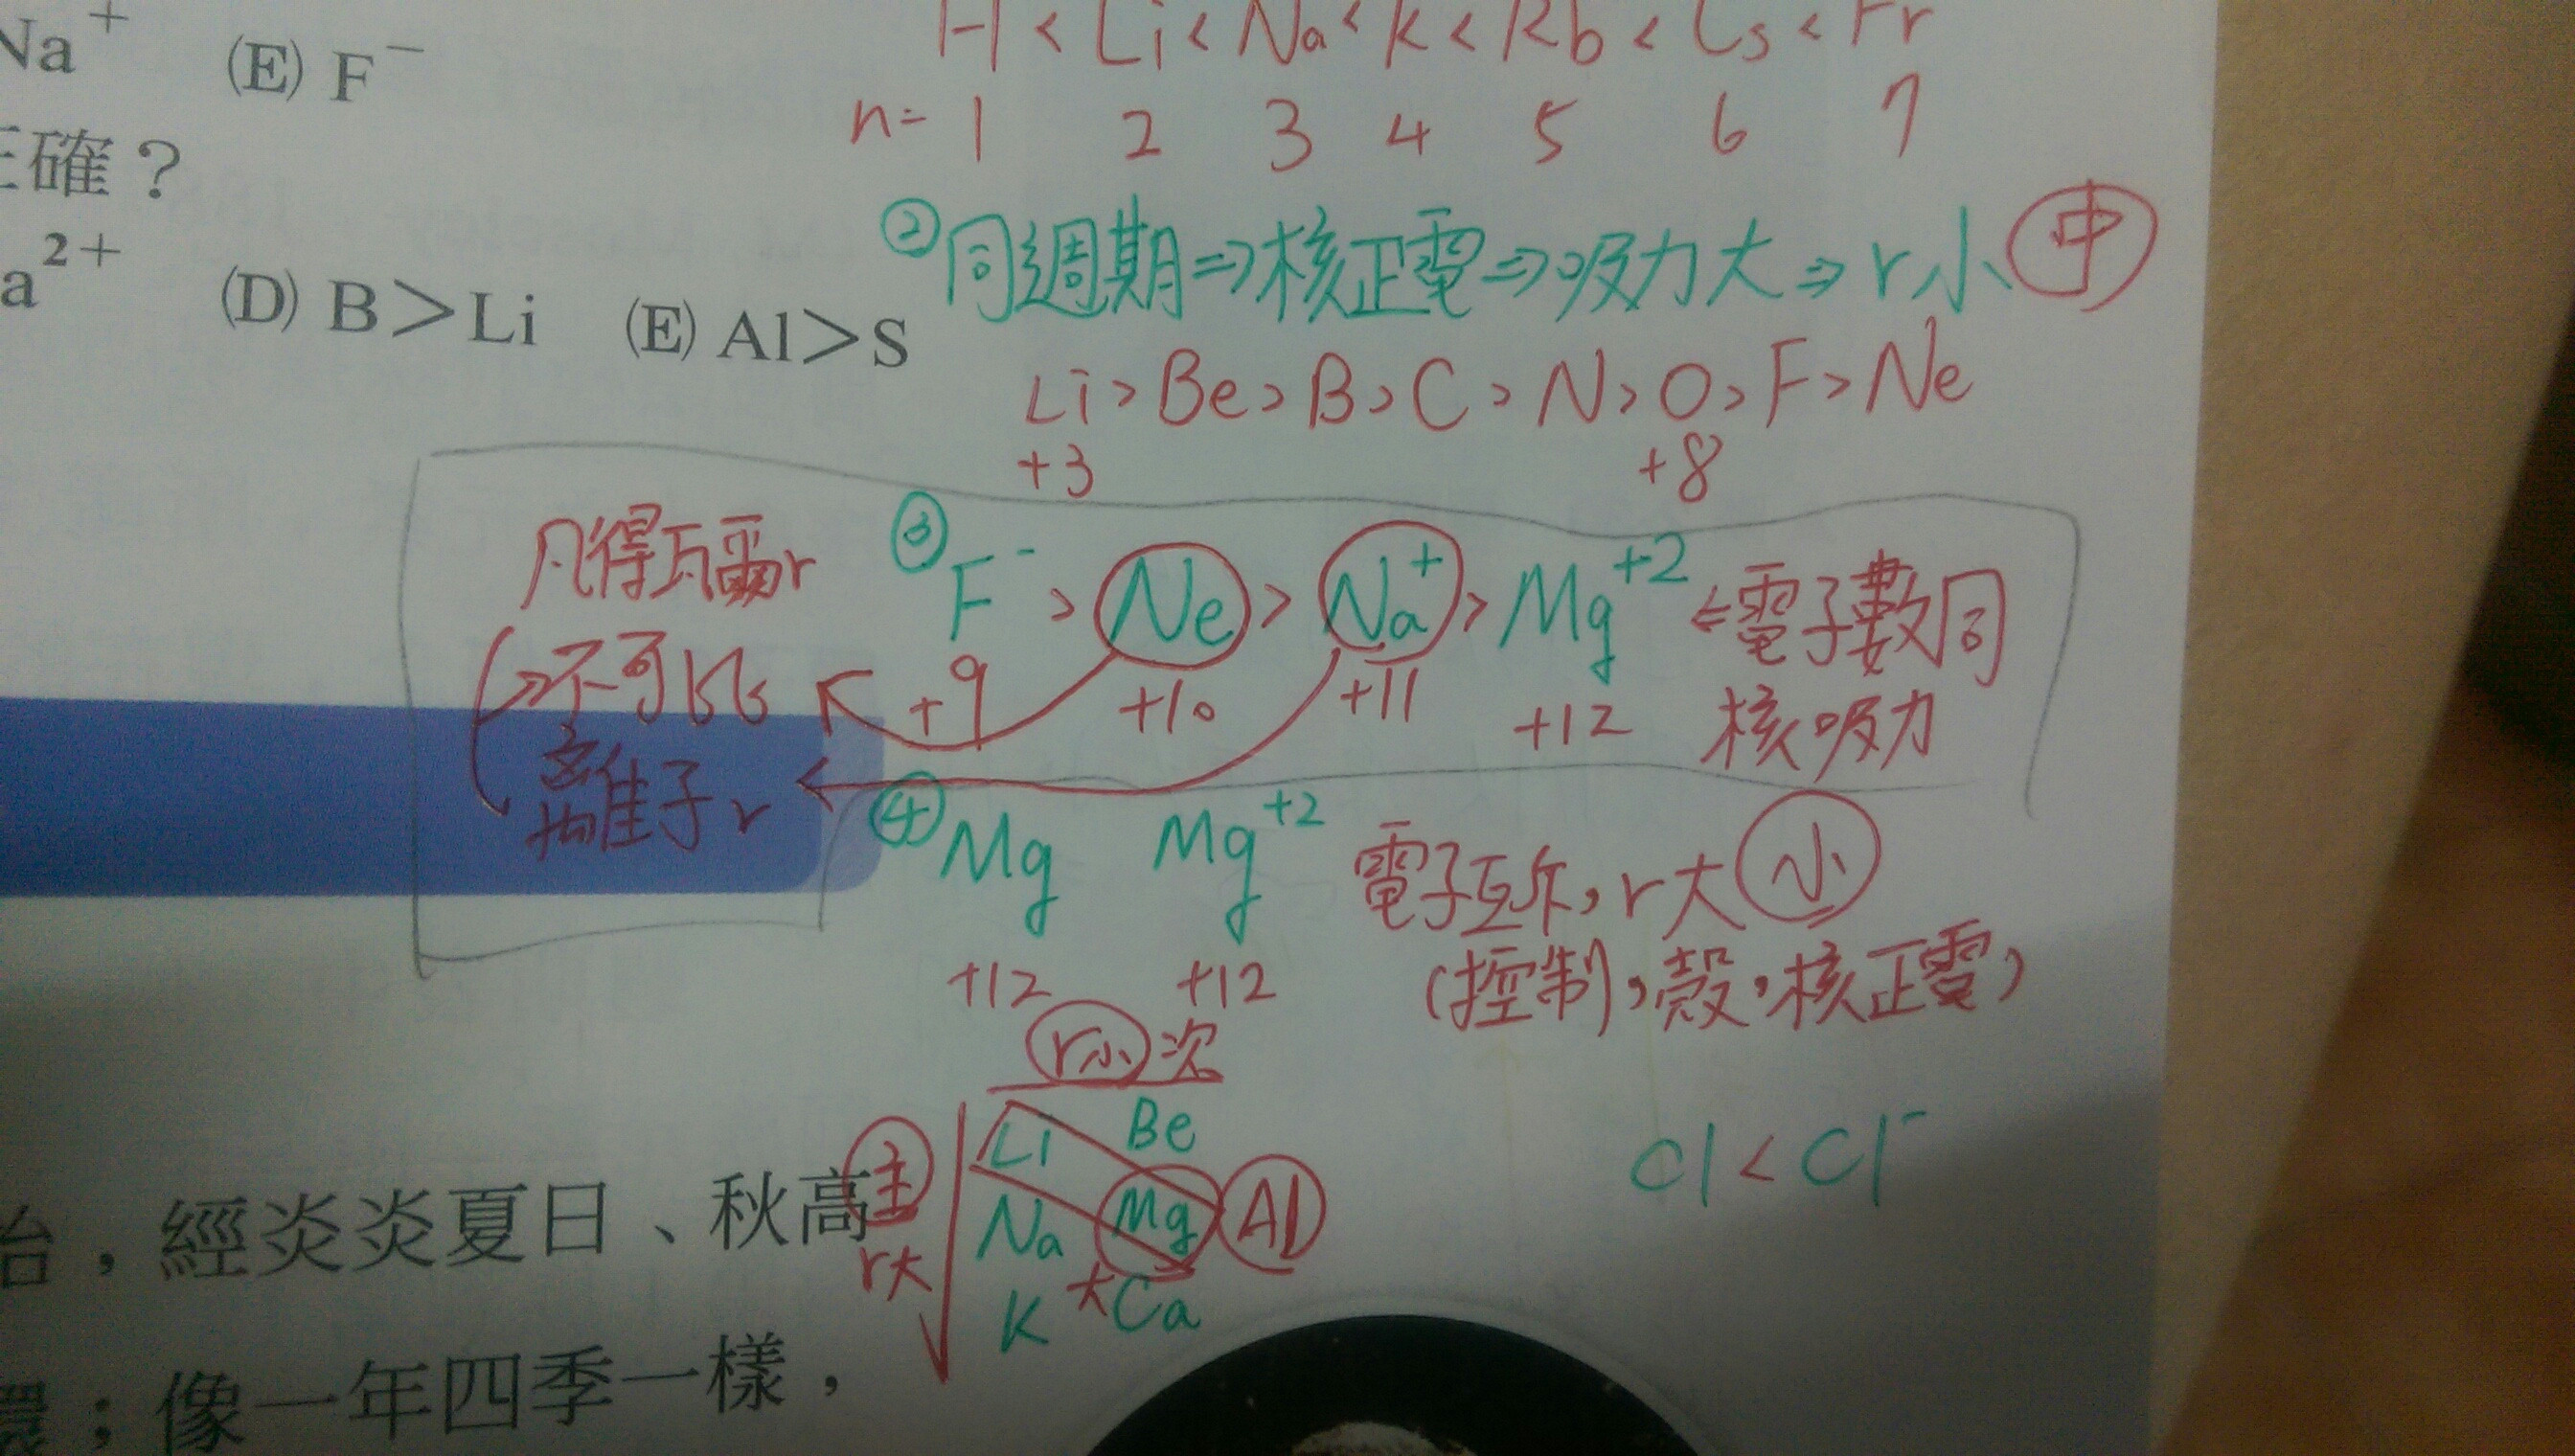 Na⁺ (E) F⁻
H < Li < Na < K < Rb < Cs < Fr
n= 1 2 3 4 5 6 7
正確？
②同週期⇒核正電⇒吸力大⇒r小 中
a²⁺ (D) B＞Li (E) Al＞S
Li > Be > B > C > N > O > F > Ne
+3 +8
凡得瓦爾r
③ F⁻ > Ne > Na⁺ > Mg⁺² ⇐電子數同
⇒不可比
+9 +10 +11 +12 核吸力
離子r
④ Mg Mg⁺² 電子互斥，r大 小
+12 +12 (控制，殼，核正電)
r小 次
主 r大
Li Be
Na Mg Al
K 大 Ca
Cl < Cl⁻
，經炎炎夏日、秋高
；像一年四季一樣，